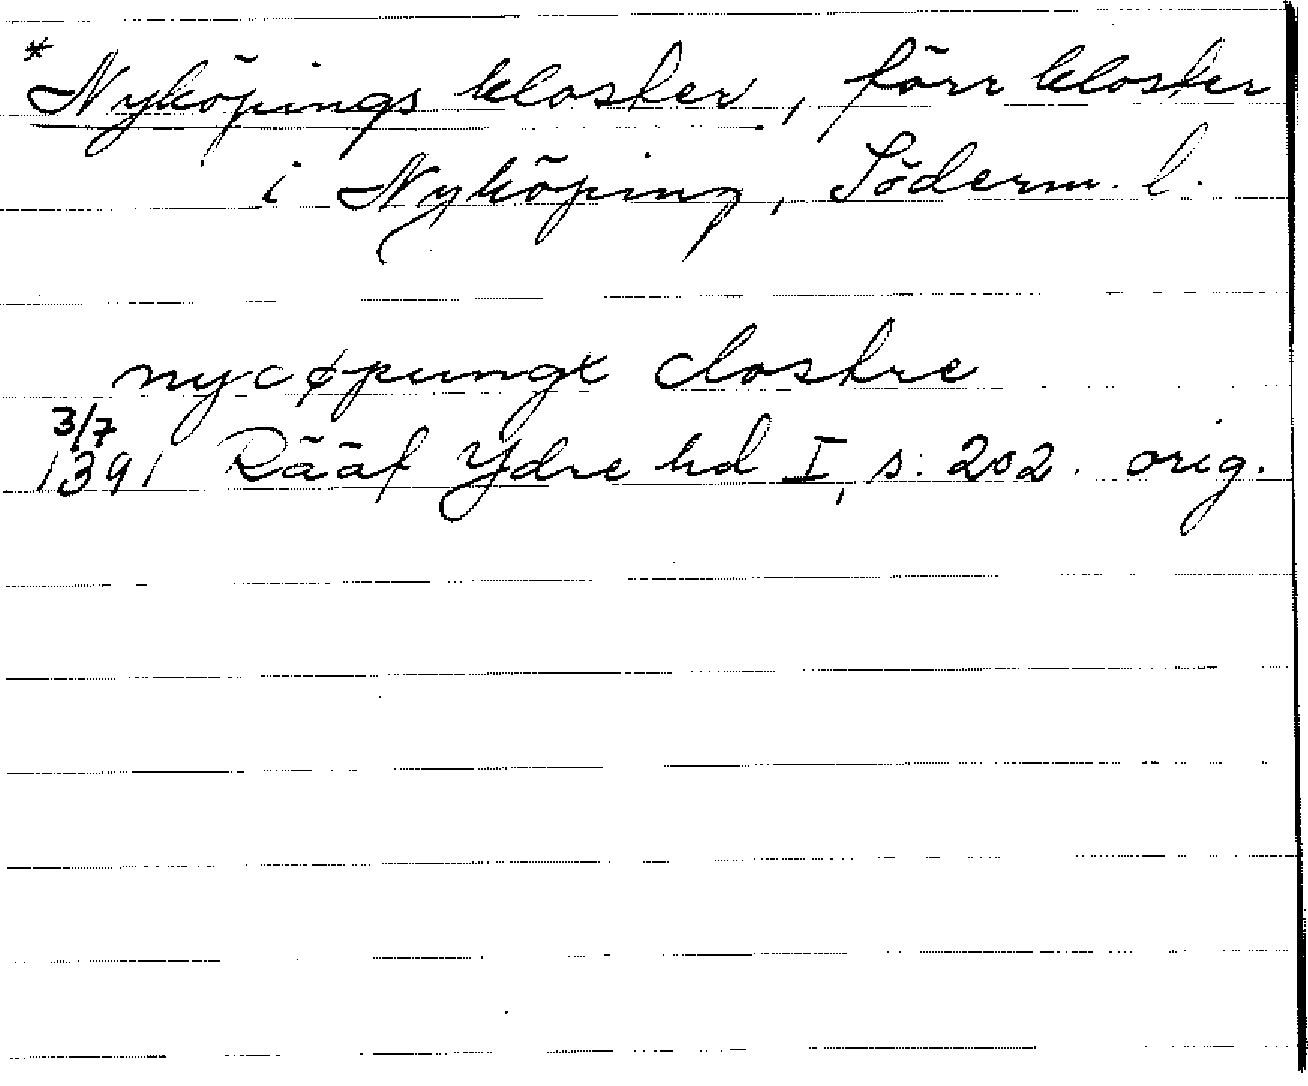 *Nyköpings kloster, förr kloster
i Nyköping, Söderm. l.
nycøpungx clostre
3/7
1391 Rääf Ydre hd I, s. 202. orig.